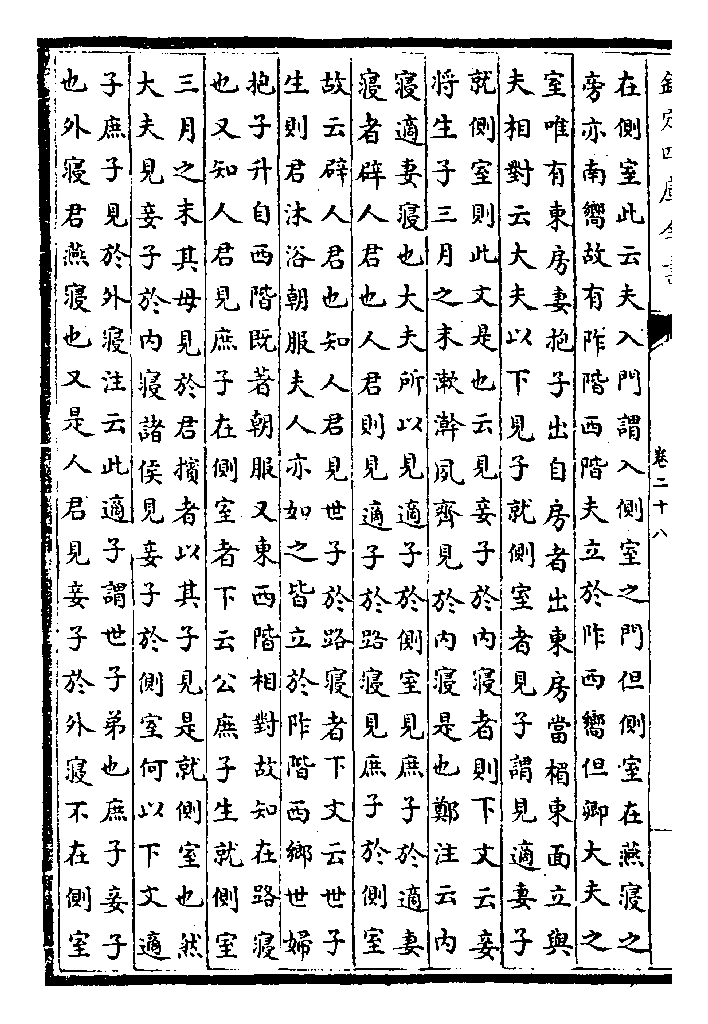 欽定四庫全書
卷二十八
在側室此云夫入門謂入側室之門但側室在燕寢之
旁亦南嚮故有阼階西階夫立於阼西嚮但卿大夫之
室唯有東房妻抱子出自房者出東房當楣東面立與
夫相對云大夫以下見子就側室者見子謂見適妻子
就側室則此文是也云見妾子於内寢者則下文云妾
将生子三月之末漱澣夙齊見於内寢是也鄭注云内
寢適妻寢也大夫所以見適子於側室見庶子於適妻
寢者辟人君也人君則見適子於路寢見庶子於側室
故云辟人君也知人君見世子於路寢者下文云世子
生則君沐浴朝服夫人亦如之皆立於阼階西鄉世婦
抱子升自西階既著朝服又東西階相對故知在路寢
也又知人君見庶子在側室者下云公庶子生就側室
三月之末其母見於君擯者以其子見是就側室也然
大夫見妾子於内寢諸侯見妾子於側室何以下文適
子庶子見於外寢注云此適子謂世子弟也庶子妾子
也外寢君燕寢也又是人君見妾子於外寢不在側室